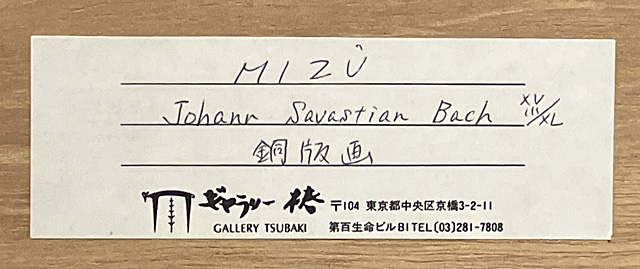 MIZÙ
Johann Savastian Bach XVIII/XL
銅版画
ギャラリー椿 〒104 東京都中央区京橋3-2-11
GALLERY TSUBAKI 第百生命ビルB1 TEL(03)281-7808